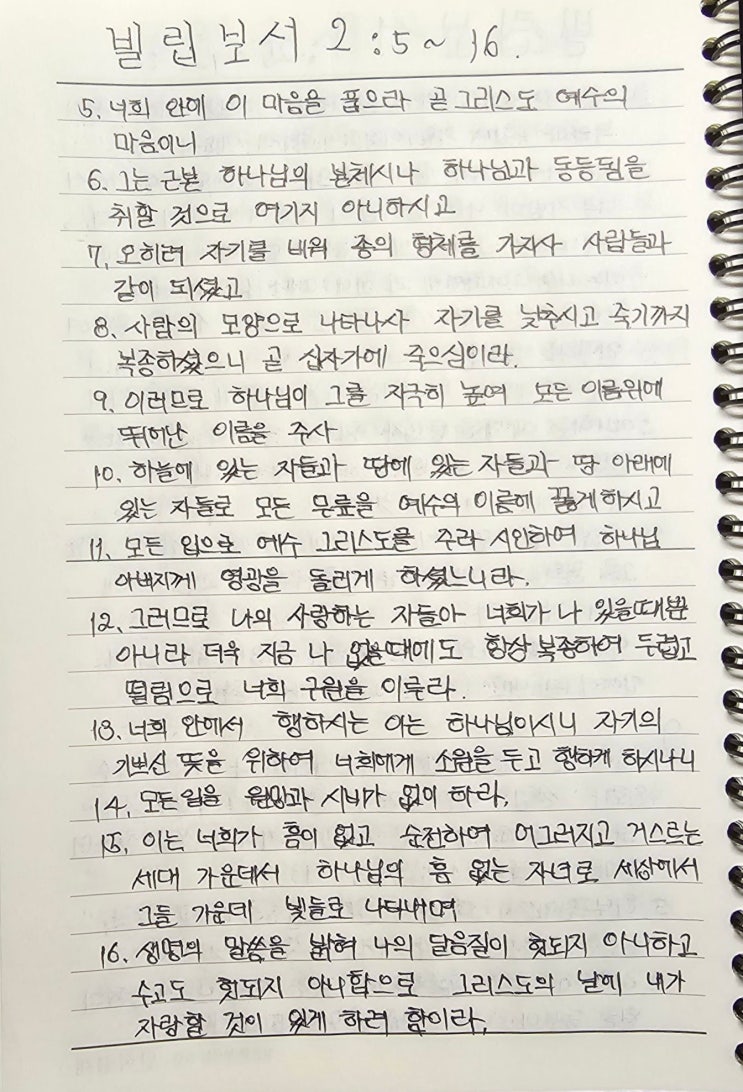 빌립보서 2:5~16.
5. 너희 안에 이 마음을 품으라 곧 그리스도 예수의
마음이니
6. 그는 근본 하나님의 본체시나 하나님과 동등됨을
취할 것으로 여기지 아니하시고
7. 오히려 자기를 비워 종의 형체를 가지사 사람들과
같이 되셨고
8. 사람의 모양으로 나타나사 자기를 낮추시고 죽기까지
복종하셨으니 곧 십자가에 죽으심이라.
9. 이러므로 하나님이 그를 지극히 높여 모든 이름위에
뛰어난 이름을 주사
10. 하늘에 있는 자들과 땅에 있는 자들과 땅 아래에
있는 자들로 모든 무릎을 예수의 이름에 꿇게하시고
11. 모든 입으로 예수 그리스도를 주라 시인하여 하나님
아버지께 영광을 돌리게 하셨느니라.
12. 그러므로 나의 사랑하는 자들아 너희가 나 있을때뿐
아니라 더욱 지금 나 없을때에도 항상 복종하여 두렵고
떨림으로 너희 구원을 이루라.
13. 너희 안에서 행하시는 이는 하나님이시니 자기의
기쁘신 뜻을 위하여 너희에게 소원을 두고 행하게 하시나니
14. 모든일을 원망과 시비가 없이 하라.
15. 이는 너희가 흠이 없고 순전하여 어그러지고 거스르는
세대 가운데서 하나님의 흠 없는 자녀로 세상에서
그들 가운데 빛들로 나타내며
16. 생명의 말씀을 밝혀 나의 달음질이 헛되지 아니하고
수고도 헛되지 아니함으로 그리스도의 날에 내가
자랑할 것이 있게 하려 함이라.